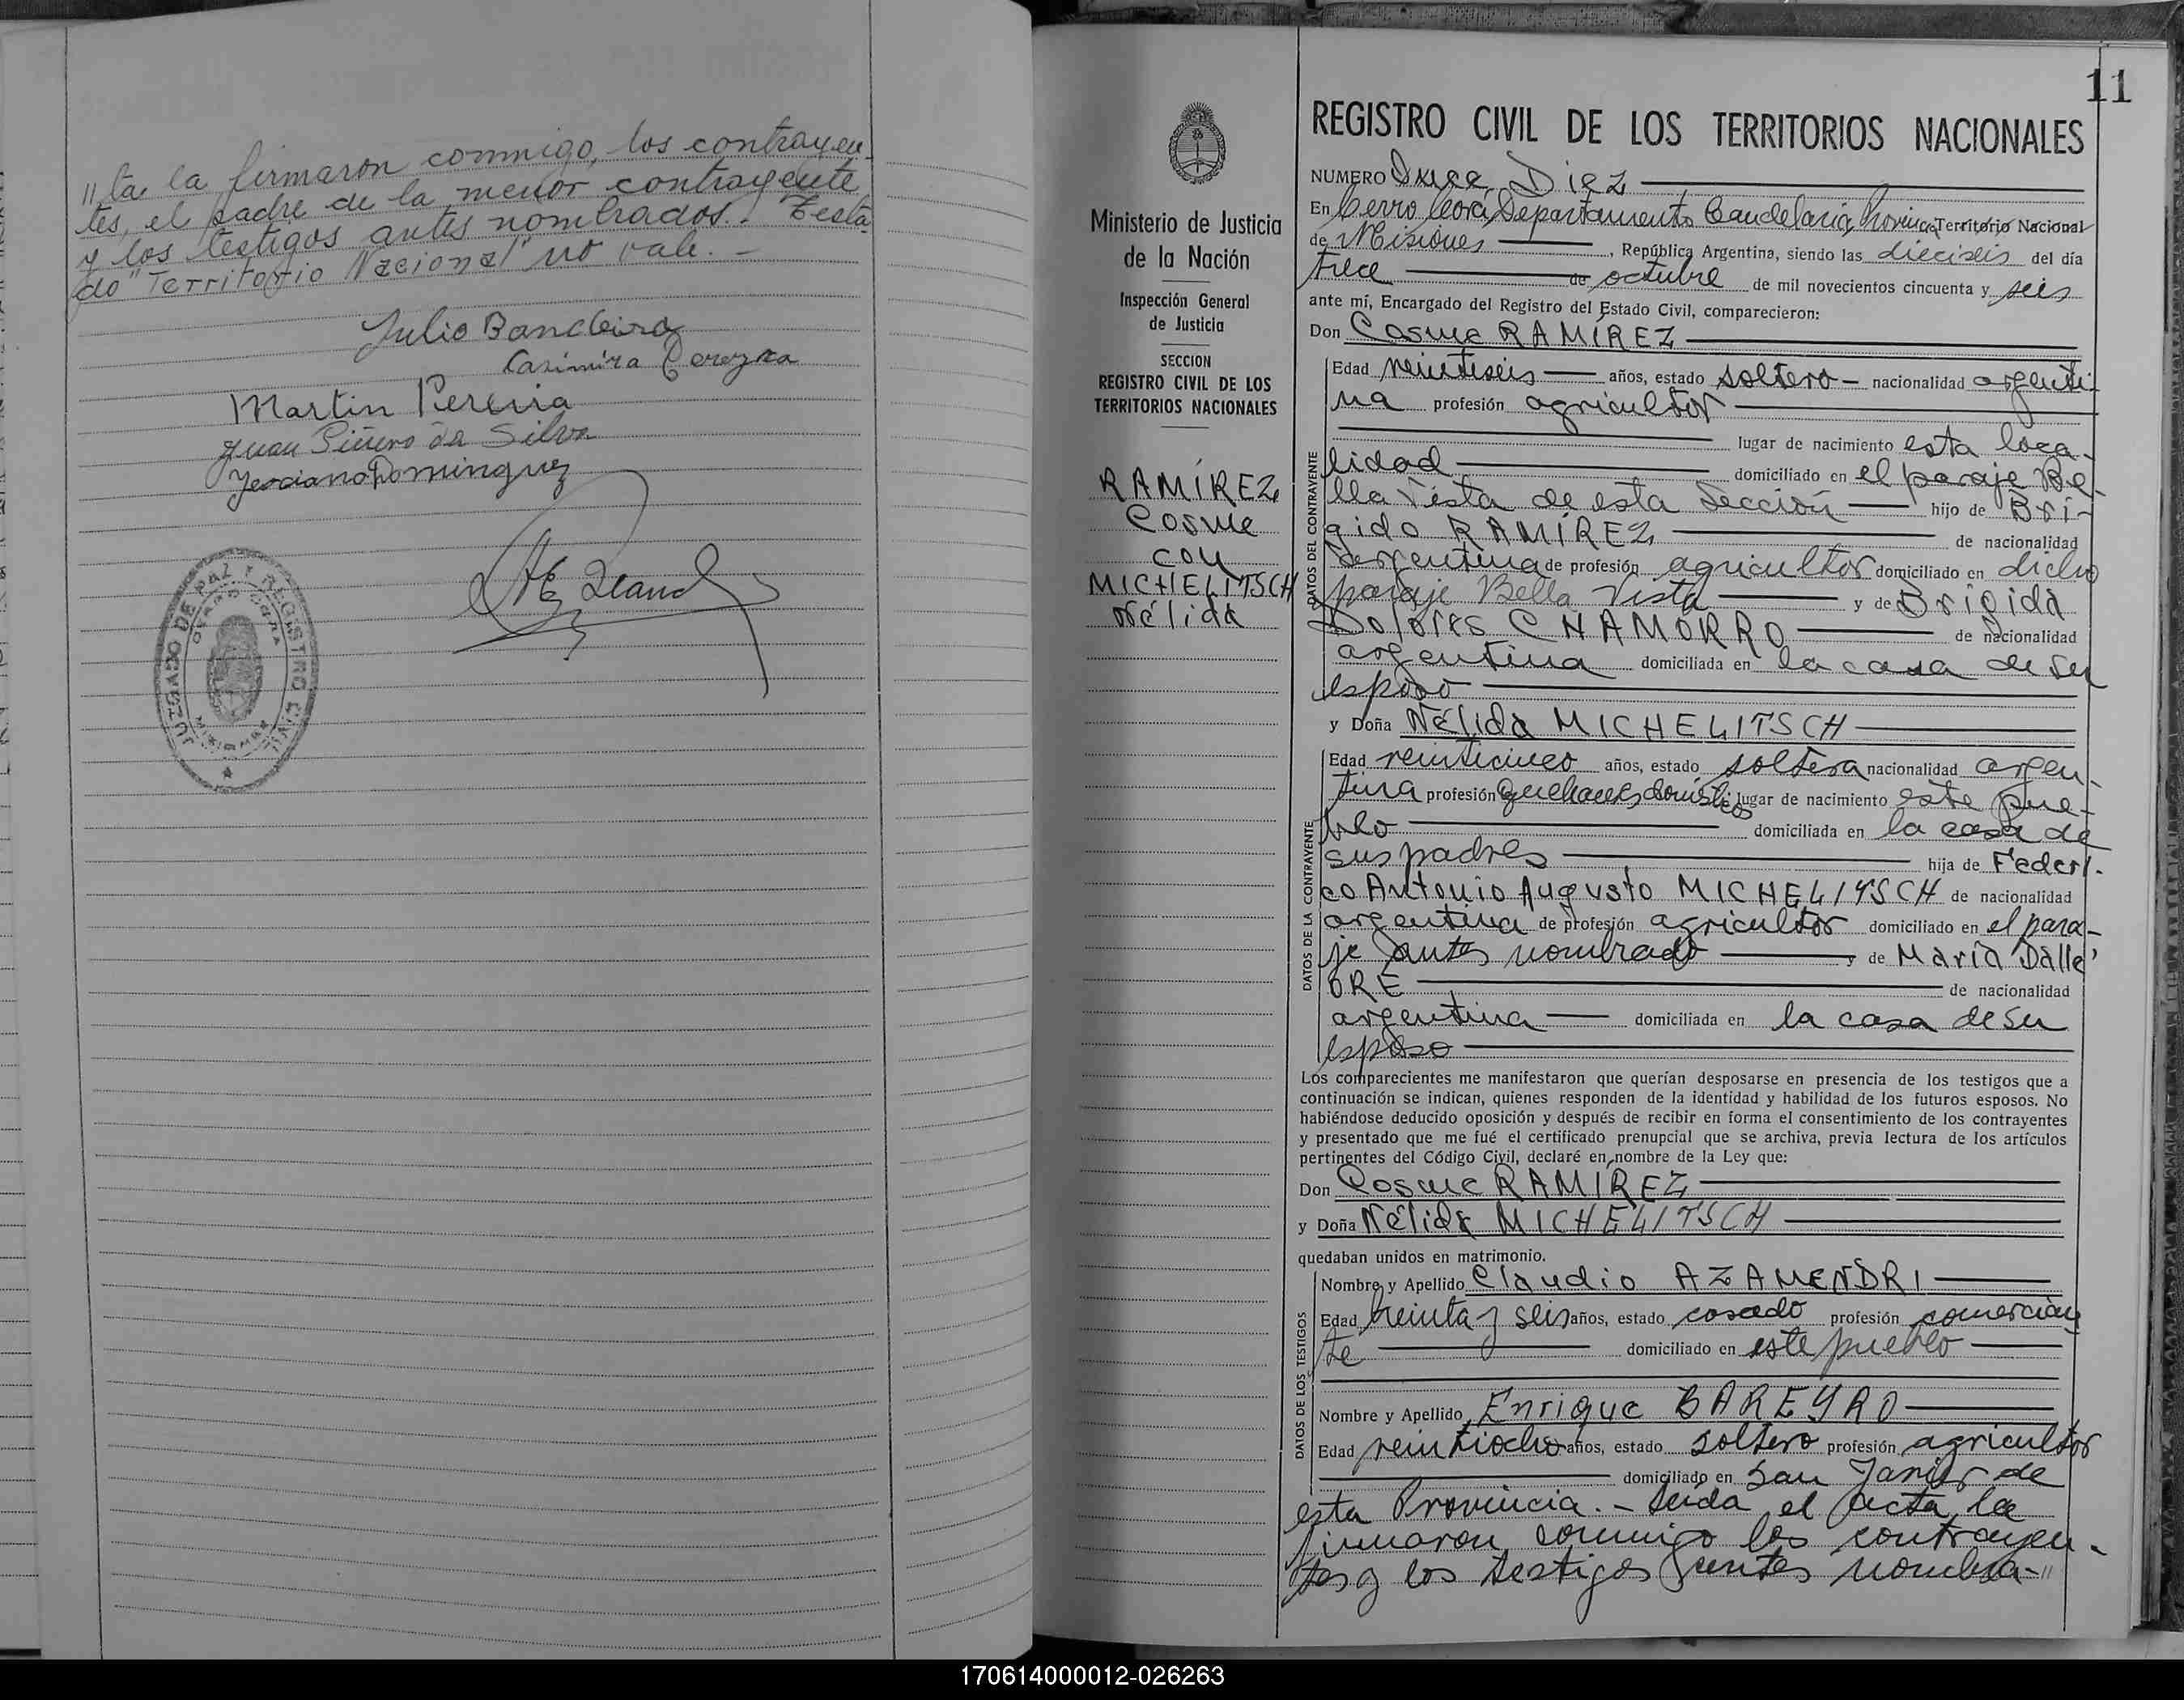 "ta la firmaron conmigo, los contrayen-
tes, el padre de la menor contrayente
y los testigos antes nombrados. Testa
do "Territorio Nacional" no vale. -
Julio Bandeira
Casimira Pereyra
Martin Pereira
Juan Piñero da Silva
Dominguez
JUZGADO DE PAZ Y REGISTRO CIVIL
CERRO CORA
MISIONES
11
Ministerio de Justicia
de la Nación
Inspección General
de Justicia
SECCION
REGISTRO CIVIL DE LOS
TERRITORIOS NACIONALES
RAMÍREZ
Cosme
con
MICHELITSCH
Nélida
REGISTRO CIVIL DE LOS TERRITORIOS NACIONALES
NUMERO Diez
En Cerro Corá, Departamento Candelaria, Provincia Territorio Nacional
de Misiones, República Argentina, siendo las dieciséis del día
trece de octubre de mil novecientos cincuenta y seis
ante mí, Encargado del Registro del Estado Civil, comparecieron:
Don Cosme RAMÍREZ
DATOS DEL CONTRAYENTE
Edad veintiseis años, estado soltero - nacionalidad argenti-
na profesión agricultor
lugar de nacimiento esta loca-
lidad domiciliado en el paraje Be-
lla Vista de esta Sección hijo de Bri-
gido RAMÍREZ de nacionalidad
argentina de profesión agricultor domiciliado en dicho
paraje Bella Vista y de Brígida
Dolores CHAMORRO de nacionalidad
argentina domiciliada en la casa de su
esposo
y Doña Nélida MICHELITSCH
DATOS DE LA CONTRAYENTE
Edad veinticinco años, estado soltera nacionalidad argen-
tina profesión quehaceres domésticos lugar de nacimiento este pue-
blo domiciliada en la casa de
sus padres hija de Federi-
co Antonio Augusto MICHELITSCH de nacionalidad
argentina de profesión agricultor domiciliado en el para-
je antes nombrado y de María Dalle'
ORE de nacionalidad
argentina domiciliada en la casa de su
esposo
Los comparecientes me manifestaron que querían desposarse en presencia de los testigos que a
continuación se indican, quienes responden de la identidad y habilidad de los futuros esposos. No
habiéndose deducido oposición y después de recibir en forma el consentimiento de los contrayentes
y presentado que me fué el certificado prenupcial que se archiva, previa lectura de los artículos
pertinentes del Código Civil, declaré en nombre de la Ley que:
Don Cosme RAMÍREZ
y Doña Nélida MICHELITSCH
quedaban unidos en matrimonio.
DATOS DE LOS TESTIGOS
Nombre y Apellido Claudio AZAMENDRI
Edad treinta y seis años, estado casado profesión comercian
te domiciliado en este pueblo
Nombre y Apellido Enrique BAREYRO
Edad veintiocho años, estado soltero profesión agricultor
domiciliado en San Javier de
esta Provincia. - Leída el acta, la
firmaron conmigo los contrayen-
tes y los testigos antes nombra-"
170614000012-026263